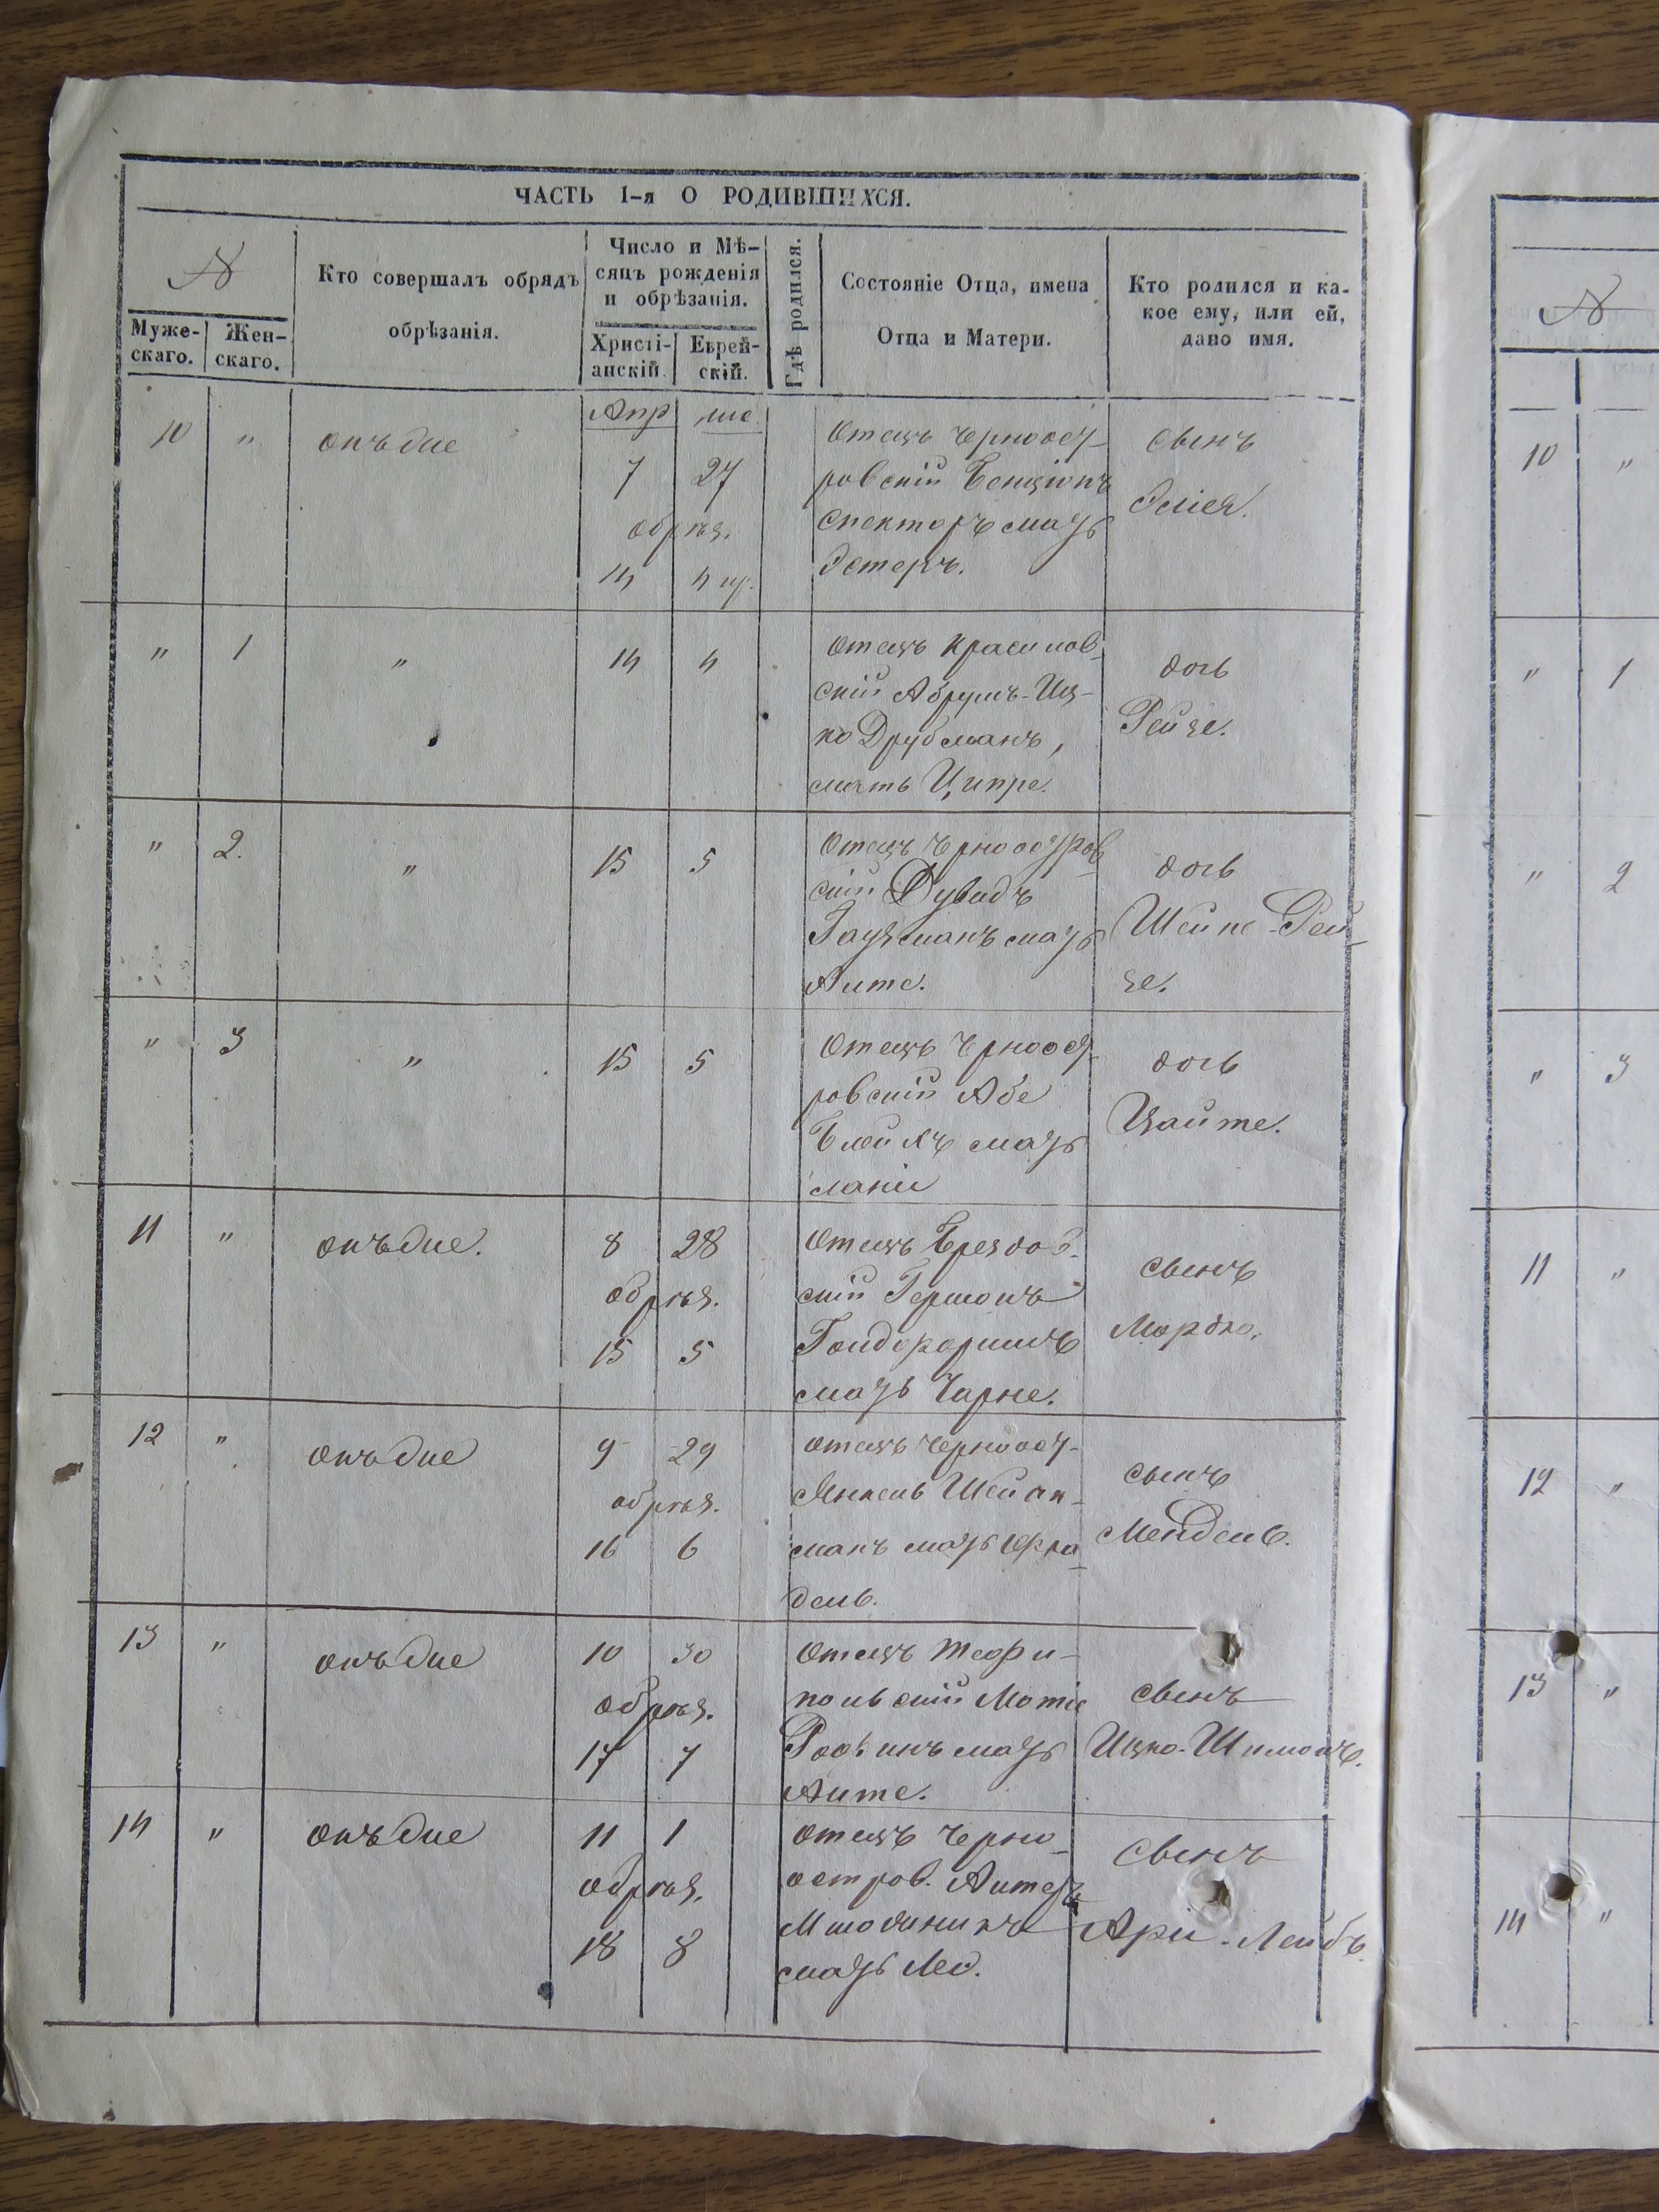 ЧАСТЬ 1-я О РОДИВШИХСЯ.
№
Муже-
скаго.
Жен-
скаго.
Кто совершалъ обрядъ
обрѣзанія.
Число и Мѣ-
сяцъ рожденія
и обрѣзанія.
Христі-
анскій.
Еврей-
скій.
Гдѣ родился.
Состояніе Отца, имена
Отца и Матери.
Кто родился и ка-
кое ему, или ей,
дано имя.
10 " онъ же
Апр
7 27
обрѣз.
14 4
Отецъ Черноост-
ровскій Бенціонъ
Спекторъ мать
Эстеръ.
сынъ
Элія.
" 1 " 14 4
Отецъ Красилов-
скій Абрумъ-Иц-
ко Друбманъ,
мать Ципре.
дочь
Рейзе.
" 2. " 15 5
Отецъ Черноостров
скій Дувидъ
Гаузманъ мать
Аите.
дочь
Шейне-Рей-
зе.
" 3 " 15 5
Отецъ Черноост-
ровскій Абе
мать
дочь
11 " онъ же.
8 28
обрѣз.
15 5
Отецъ
скій Гершонъ
мать Чарне.
сынъ
Мордко.
12 " онъ же
9 29
обрѣз.
16 6
Отецъ Черноост-
Янкель
манъ мать Фра
дель.
сынъ
Мендель.
13 " онъ же
10 30
обрѣз.
17 7
Отецъ Теофи-
польскій Мотіе
мать
Аите.
сынъ
Ицко-Шимонъ.
14 " онъ же
11 1
обрѣз.
18 8
Отецъ Черно-
остров.
мать Лея.
сынъ
Арій-Лейбъ
№
10 "
" 1
" 2
" 3
11 "
12 "
13 "
14 "